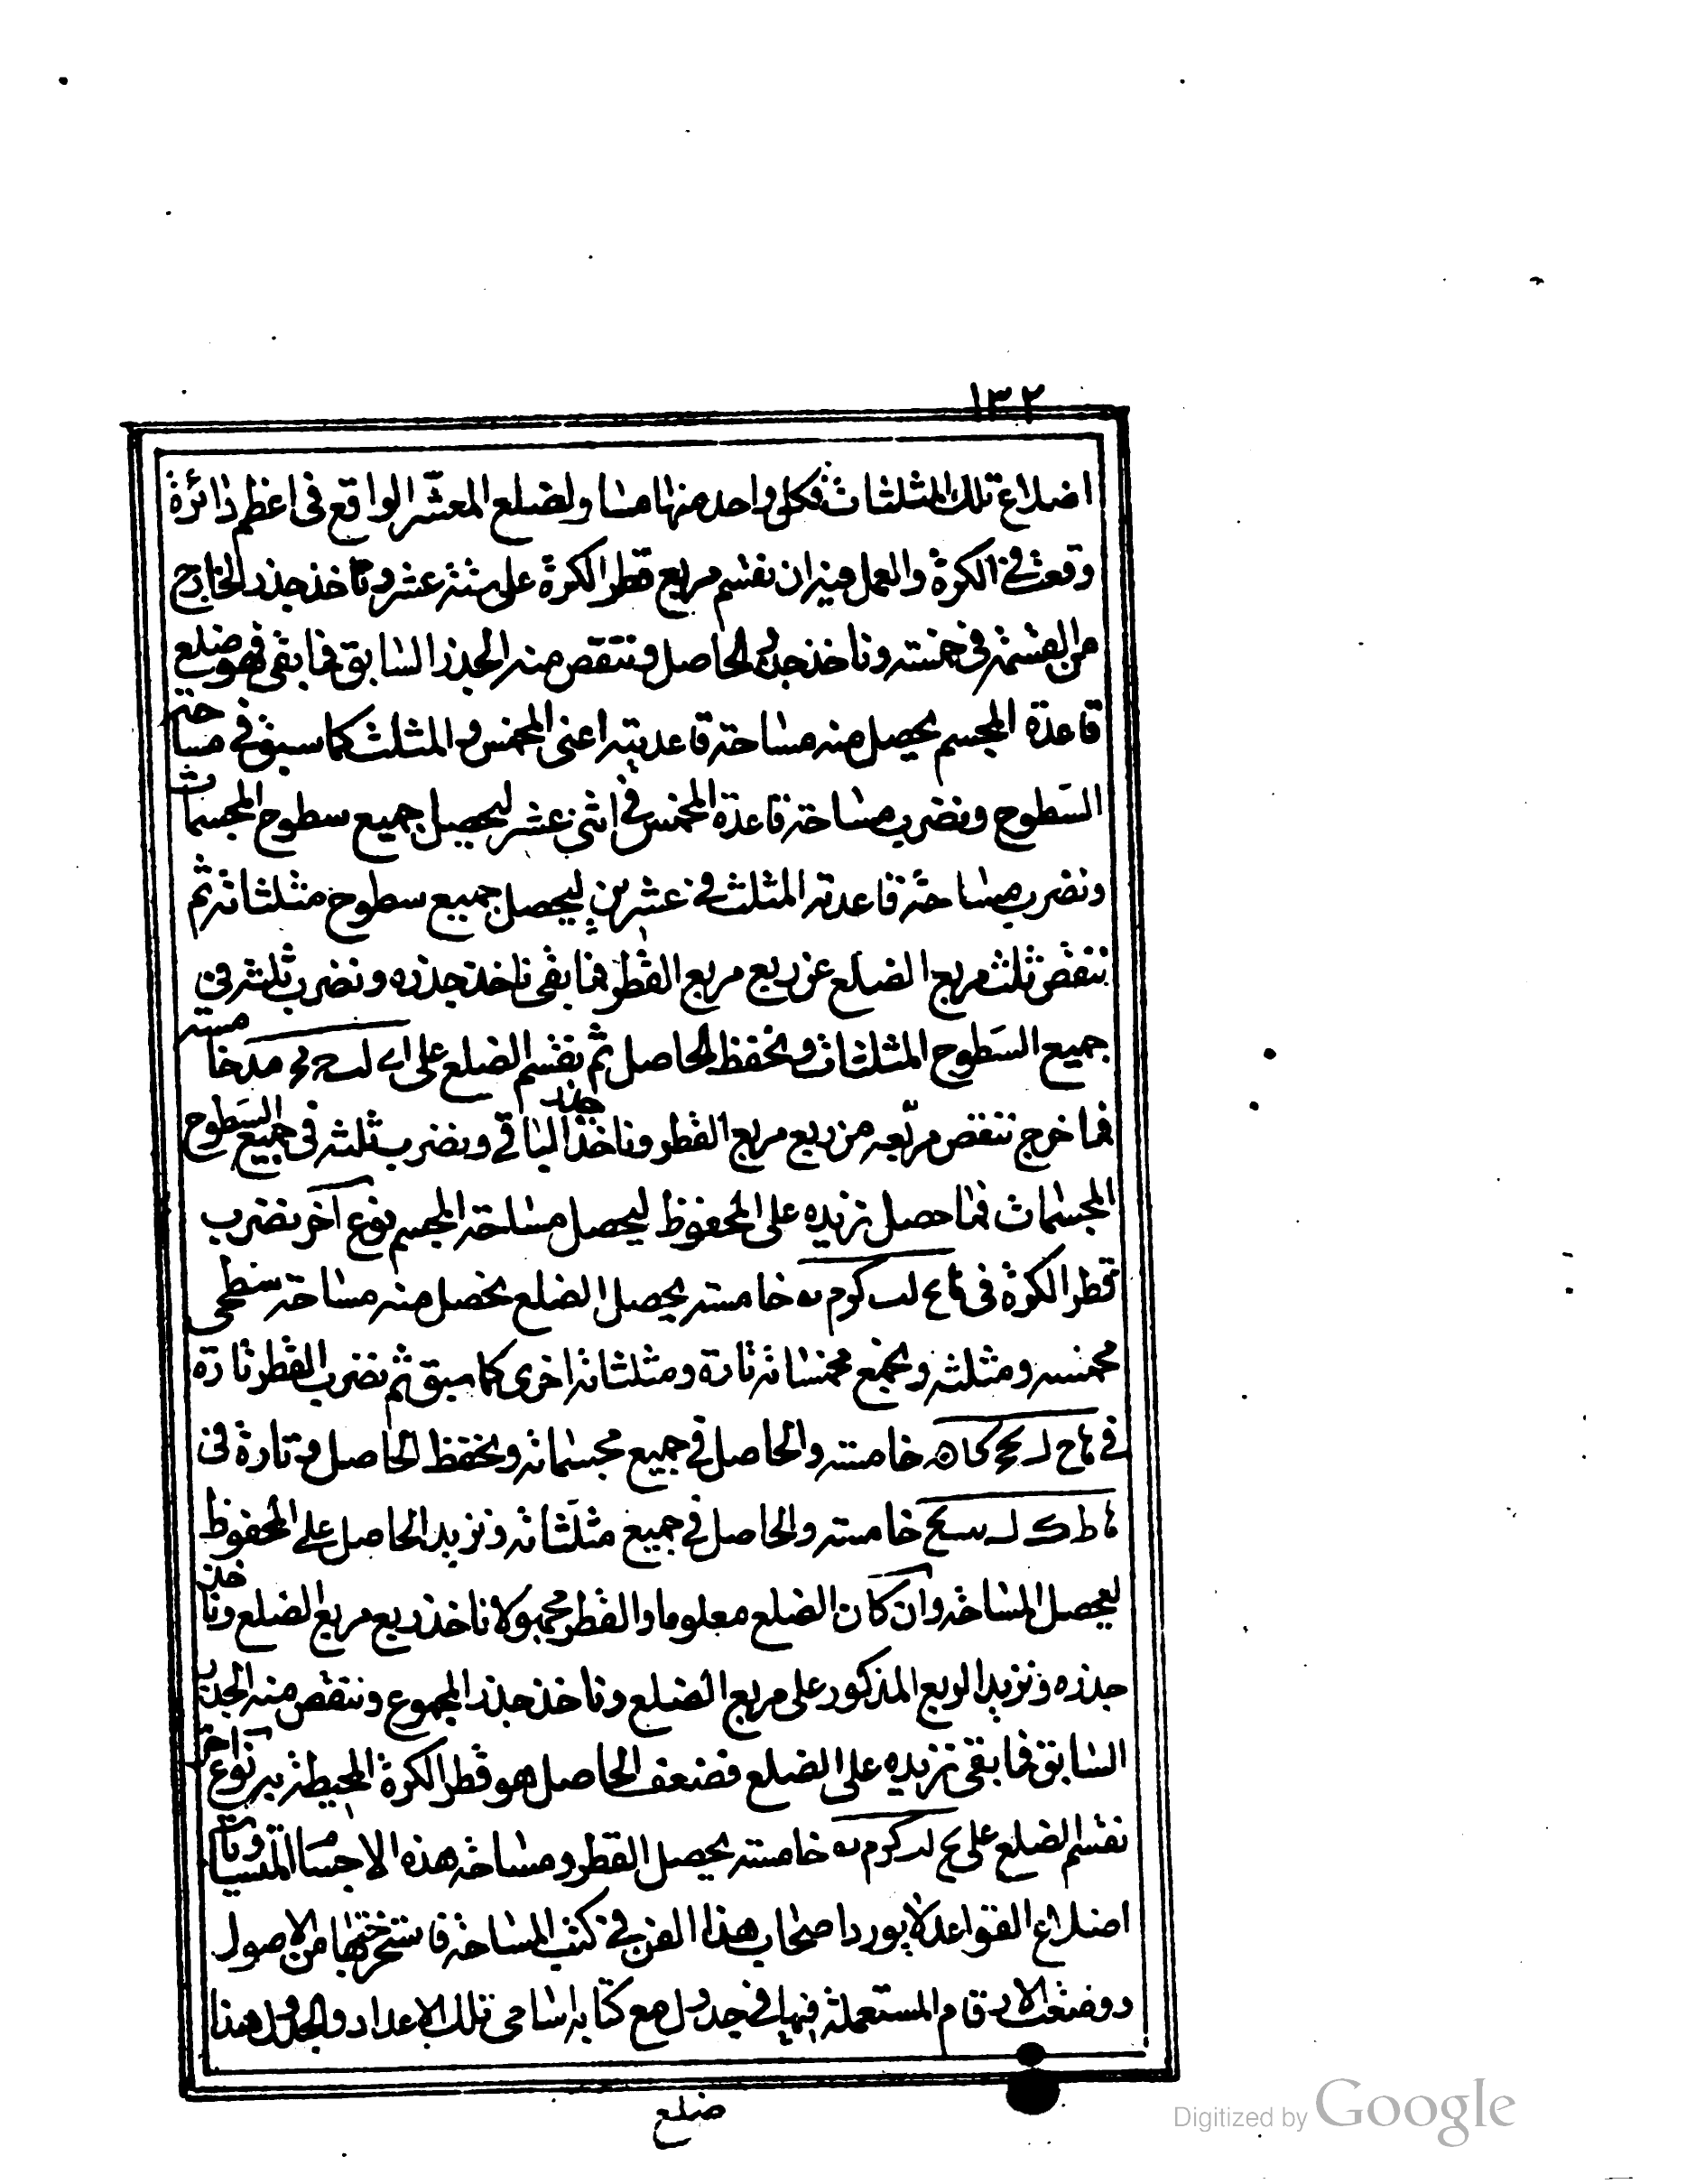 ١٣٢
اضلاع تلك المثلثات فكل واحد منها مساو لضلع المعشر الواقع فى اعظم دائرة
وقعت فى الكرة والعمل فيه ان نقسم مربع قطر الكرة على ستة عشر وناخذ جذر الخارج
من القسمة فى خمسة وناخذ جذر الحاصل وننقص منه الجذر السابق فما بقى فهو ضلع
قاعدة المجسم يحصل منه مساحة قاعدتيه اعنى المخمس والمثلث كما سبق فى مساحة
السطوح ونضرب مساحة قاعدة المخمس فى اثنى عشر ليحصل جميع سطوح المجسمات
ونضرب مساحة قاعدته المثلث فى عشرين ليحصل جميع سطوح مثلثاته ثم
ننقص ثلث مربع الضلع عن ربع مربع القطر فما بقى ناخذ جذره ونضرب ثلثه فى
جميع السطوح المثلثات ونحفظ الحاصل ثم نقسم الضلع على خامسة
فما خرج ننقص مربعه من ربع مربع القطر وناخذ جذر الباقى ونضرب ثلثه فى جميع السطوح
المجسمات فما حصل نزيده على المحفوظ ليحصل مساحة المجسم نوع آخر نضرب
قطر الكرة فى خامسة يحصل الضلع نحصل منه مساحة سطحى
مخمسه ومثلثه ونجمع مخمساته تارة ومثلثاته اخرى كما سبق ثم نضرب القطر تارة
فى خامسة والحاصل فى جميع مجسماته ونحفظ الحاصل وتارة فى
خامسة والحاصل فى جميع مثلثاته ونزيد الحاصل على المحفوظ
ليحصل المساحة وان كان الضلع معلوما والقطر مجهولا ناخذ ربع مربع الضلع وناخذ
جذره ونزيد الربع المذكور على مربع الضلع وناخذ جذر المجموع وننقص منه الجذر
السابق فما بقى نزيده على الضلع فضعف الحاصل هو قطر الكرة المحيطة به نوع آخر
نقسم الضلع على خامسة يحصل القطر ومساحة هذه الاجسام المتساويات
اضلاع القواعد لا يورد اصحاب هذا الفن فى كتب المساحة فاستخرجتها من الاصول
ووضعت الارقام المستعملة فيها فى جدول مع كتابة اسامى تلك الاعداد والجدول هذا
ضلع
Digitized by Google